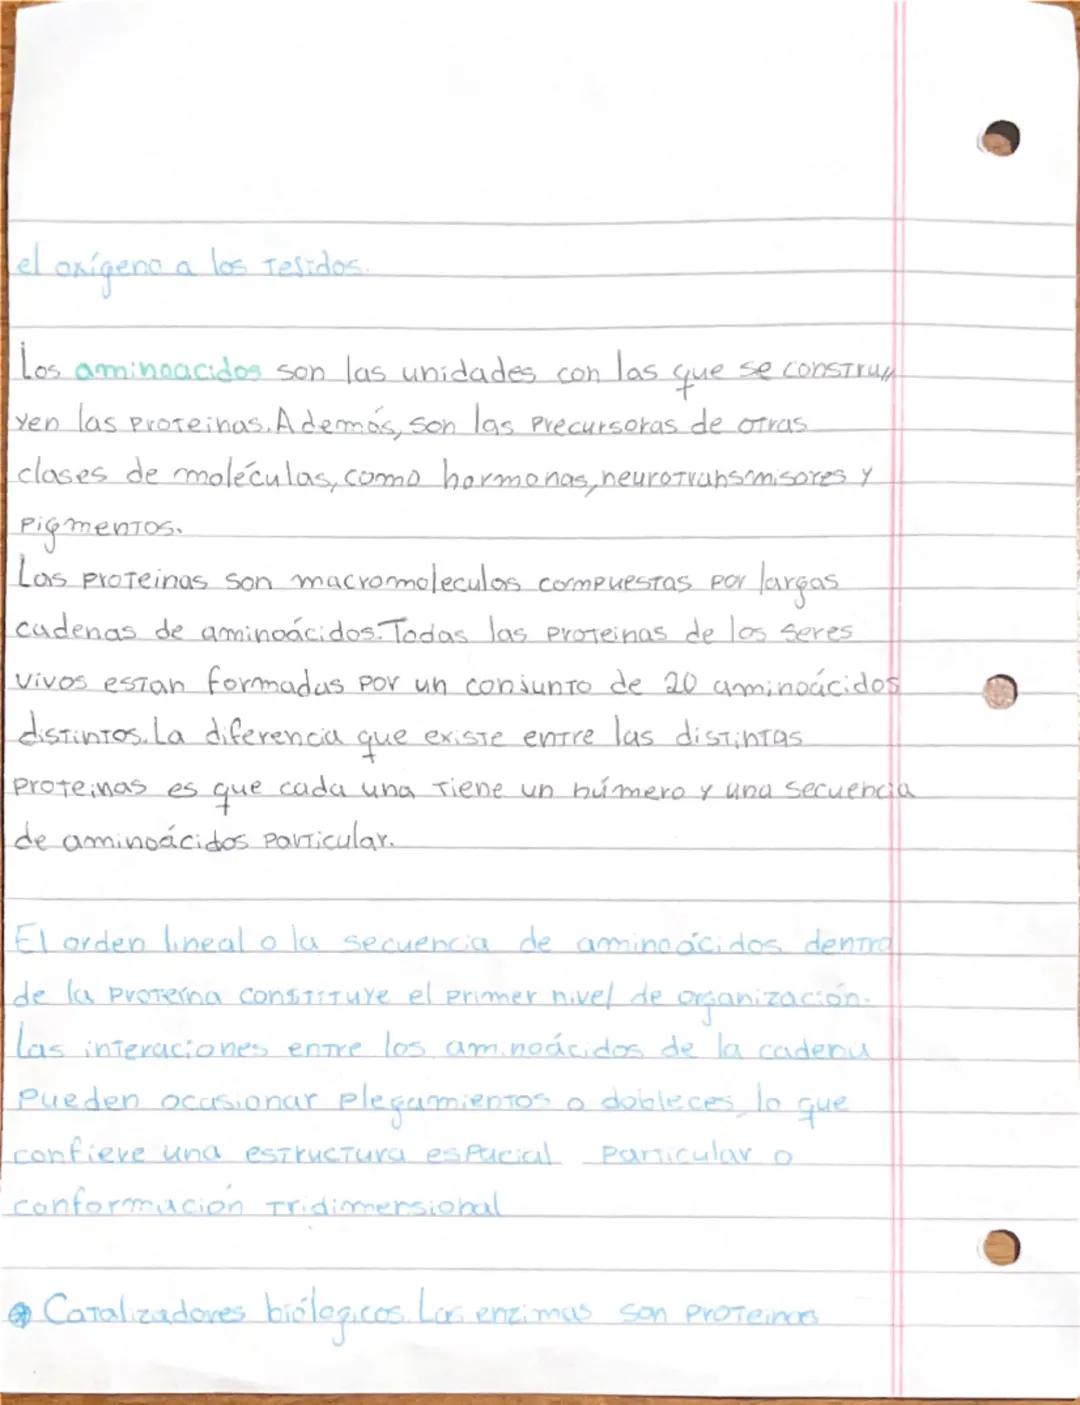 el oxígeno a los Tejidos.
Los aminoacidos son las unidades con las que se constru//
yen las proteinas. Además, son las Precursoras de otras
clases de moléculas, como hormonas, neurotransmisores y
Pigmentos.
Las proteinas son macromoleculas compuestas por largas
cadenas de aminoácidos. Todas las proteinas de los seres
vivos estan formadas por un conjunto de 20 aminoácidos
distintos. La diferencia que existe entre las distintas
proteinas es que cada una tiene un número y una secuencia
de aminoácidos particular.
El orden lineal o la secuencia de aminoácidos dentro
de la proteína constituye el primer nivel de organización.
Las interaciones entre los aminoácidos de la cadena
Pueden ocasionar plegamientos o dobleces, lo que
confiere una estructura espacial particular o
conformación tridimensional
Catalizadores biólogicos. Las enzimas son proteinas